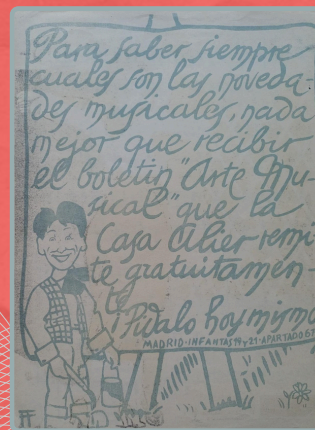 Para saber siempre
cuales son las noveda-
des musicales, nada
mejor que recibir
el boletin "Arte Mu-
sical" que la
Casa Alier remi-
te gratuitamen-
te
¡Pidalo hoy mismo
MADRID-INFANTAS 19 y 21-APARTADO 6